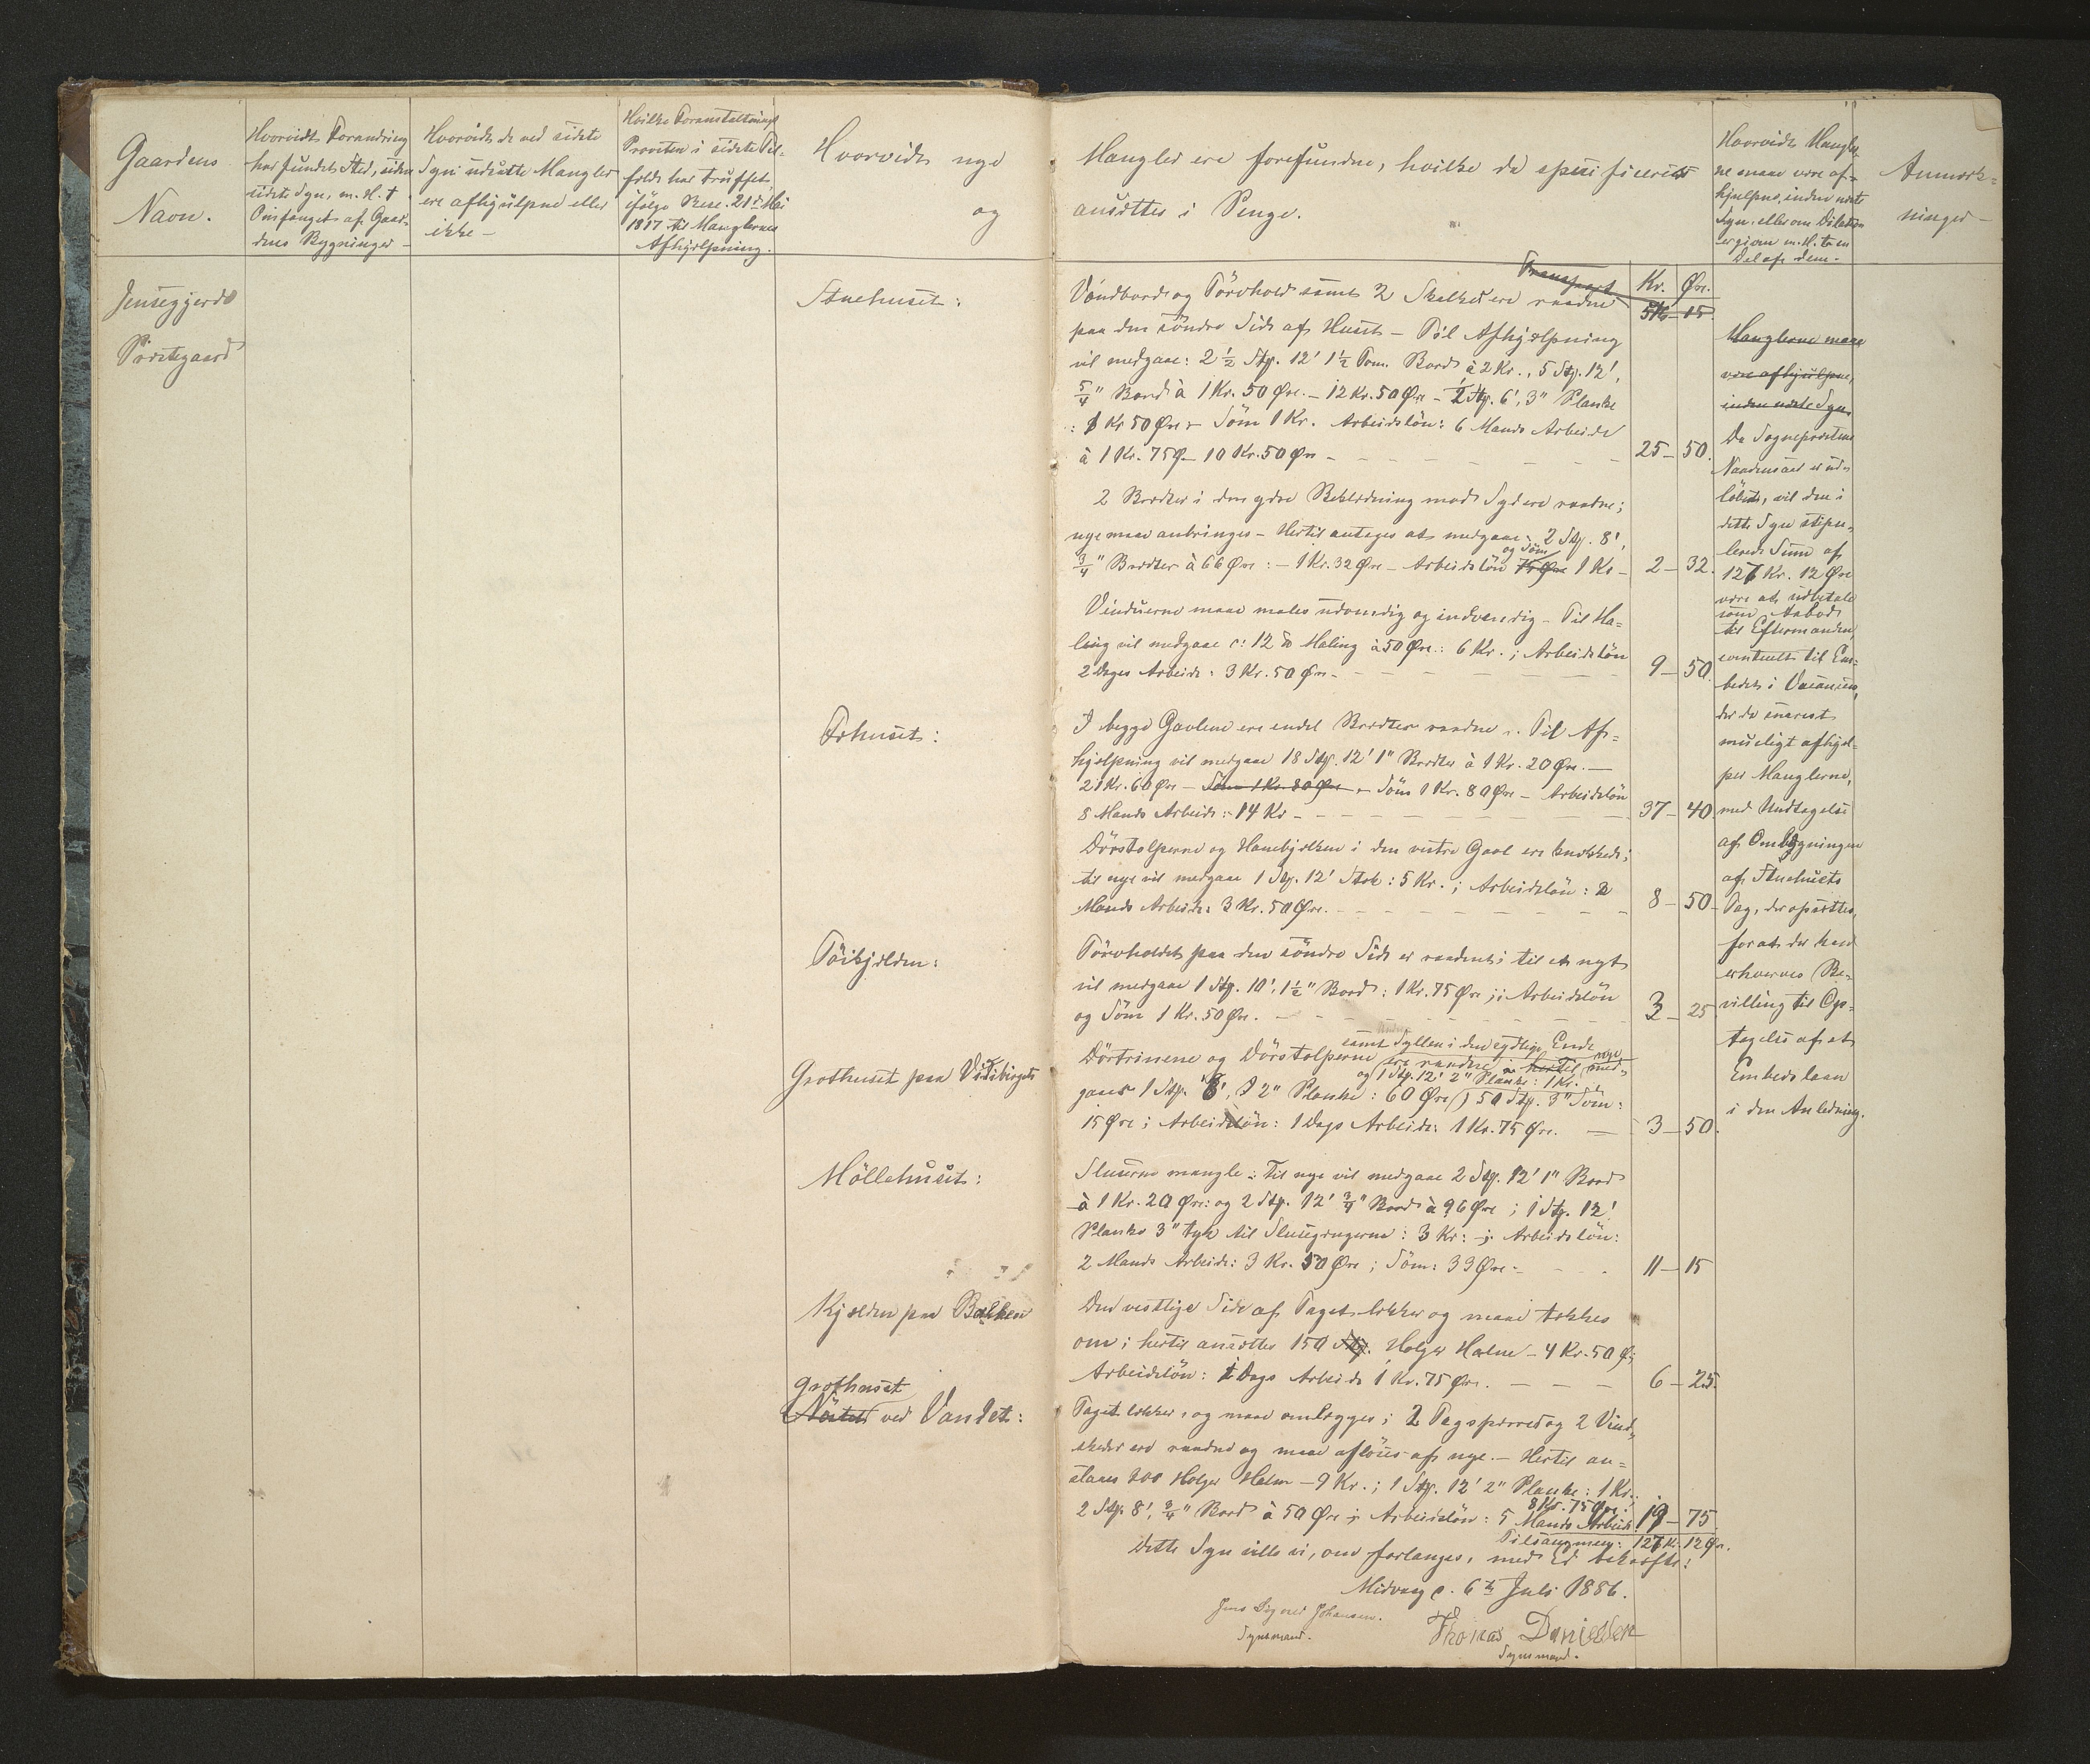 Gaardens
Navn.
Hvorvidt Forandring
har fundet Sted, siden
sidste Syn, m. H. t.
Omfanget af Gaar-
dens Bygninger –
Hvorvidt de ved sidste
Syn udsatte Mangler
ere afhjulpne eller
ikke –
Hvilke Foranstaltninger
Provsten i sidste Til-
fælde har truffet,
ifølge Resc. 21de Mai
1817 til Manglernes
Afhjælpning.
Hvorvidt nye
og
Jensegjerds
Præstegaard
Stuehuset:
Fæhuset:
Töikjælden:
Grothuset paa
Möllehuset:
Kjælden paa Bakken
Grothuset
ved Vandet:
Mangler ere forefundne, hvilke da specificeres
ansættes i Penge.
Hvorvidt Mangler-
ne maae være af-
hjulpne, inden næste
Syn, eller om Dilation
er given m. H. t. en
Del af dem.
Anmærk-
ninger –
Transport
Kr. Øre.
Vandbord og Törvhold samt 2 Skalker ere raadne
paa den söndre Side af Huset – Til Afhjælpning
vil medgaae: 2 1/2 Stk. 12' 1 1/2 Tom. Bord à 2 Kr., 5 Stk. 12',
5/4" Bord à 1 Kr. 50 Øre. – 12 Kr. 50 Øre – 1/2 Stk. 6', 3" Planke
: 1 Kr 50 Øre – Söm 1 Kr. Arbeidslön: 6 Mands Arbeide
à 1 Kr. 75 Ø – 10 Kr. 50 Øre – 25 – 50.
2 Brædter i den ydre Beklædning mod Syd ere raadne;
nye maae anbringes – Hertil antages at medgaae: 2 Stk. 8',
og Söm
3/4" Brædter à 66 Øre: – 1 Kr. 32 Øre – Arbeidslön 75 Øre 1 Kr – 2 – 32.
Vinduerne maae males udvendig og indvendig – Til Ma-
ling vil medgaae c: 12 ℔ Maling à 50 Øre: 6 Kr.; Arbeidslön
2 Dages Arbeide: 3 Kr. 50 Øre – 9 – 50.
I begge Gavlene ere endel Brædter raadne. Til Af-
hjælpning vil medgaae 18 Stk. 12' 1" Brædter à 1 Kr. 20 Øre. –
21 Kr. 60 Øre – Söm 1 Kr. 80 Øre – Söm 1 Kr. 80 Øre – Arbeidslön
8 Mands Arbeide: 14 Kr – 37 – 40.
Dörstolperne og Hanebjælken i den vestre Gavl ere knækkede;
til nye vil medgaae 1 Stk. 12' Stok: 5 Kr.; Arbeidslön: 2
Mands Arbeide: 3 Kr. 50 Øre. – 8 – 50 –
Törvholdet paa den söndre Side er raadent; til et nyt
vil medgaae 1 Stk. 10', 1 1/2" Bord: 1 Kr. 75 Øre; Arbeidslön
og Söm 1 Kr. 50 Øre. – 3 – 25
samt Syllen i den sydlige Ende
Dörtrinene og Dörstolperne ere raadne hertil nye med-
og 1 Stk. 12' 2" Planke: 1 Kr.
gaaer 1 Stk. 8', 2" Planke: 60 Øre; 50 Stk. 3" Söm:
15 Øre; Arbeidslön: 1 Dags Arbeide: 1 Kr. 75 Øre. – 3 – 50.
Sluserne mangle: Til nye vil medgaae 2 Stk. 12' 1" Bord
à 1 Kr. 20 Øre: og 2 Stk. 12' 3/4" Bord à 96 Øre; 1 Stk. 12'
Planke 3" tyk til : 3 Kr: Arbeidslön:
2 Mands Arbeide: 3 Kr. 50 Øre; Söm: 33 Øre – 11 – 15
Den vestlige Side af Taget lækker og maae tækkes
om; hertil ansættes 150 Stk. Holger Halm – 4 Kr. 50 Ø;
Arbeidslön: 1 Dags Arbeide 1 Kr. 75 Øre. – 6 – 25.
Taget lækker, og maae omlægges; 2 Tagsperrer og 2 Vind-
skeder ere raadne og maae aflöses af nye. – Hertil an-
slaaes 300 Holger Halm – 9 Kr.; 1 Stk. 12' 2" Planke: 1 Kr.
8 Kr. 75 Øre:
2 Stk. 8', 3/4" Bord à 50 Øre; Arbeidslön: 5 Mands Arbeide 19 – 75.
Tilsammen: 127 Kr. 12 Øre.
Dette Syn ville vi, om forlanges, med Ed bekræfte:
Midvaag d. 6te Juli 1886.
Jens Johansen.
Synsmand.
Thomas Danielsen
Synsmand.
Manglerne maae
være afhjulpne,
inden næste Syn.
Da Sognepræstens
Naadensaar er ud-
löbet, vil den i
dette Syn stipu-
lerede Sum af
127 Kr. 12 Øre
være at udbetale
som Aabod
til Eftermanden,
eventuelt til Em-
bedet i Vacancen,
der da snarest
muligt afhjæl-
per Manglerne,
med Undtagelse
af Ombygningen
af Stuehusets
Tag, der opsættes,
for at der kan
erhverves Be-
villing til Op-
tagelse af et
Embedslaan
i den Anledning.